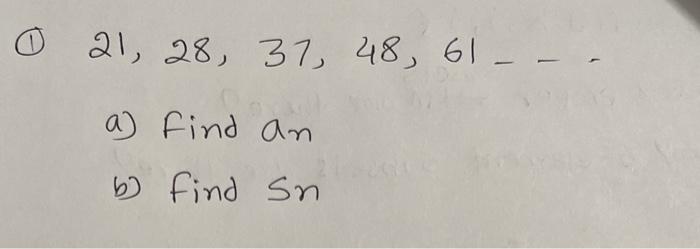 ① 21, 28, 37, 48, 61 - - -
a) Find an
b) Find Sn